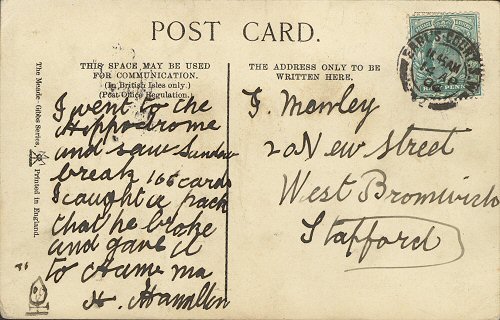 POST CARD.
THIS SPACE MAY BE USED
FOR COMMUNICATION.
(In British Isles only.)
(Post Office Regulation.)
THE ADDRESS ONLY TO BE
WRITTEN HERE.
The Meade-Gibbs Series,
Printed in England.
I went to the
Hippodrome
and saw Sandow
break 165 cards
I caught a pack
that he broke
and gave it
to
H. Hamilton
20 New Street
West Bromwich
Stafford